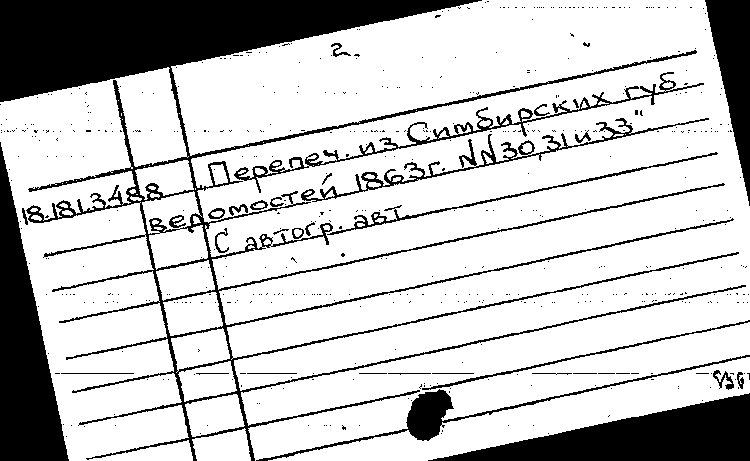 2.
18.181.3.488 „Перепеч. из Симбирских губ.
ведомостей 1863г. NN30,31 и 33"
С автогр. авт.